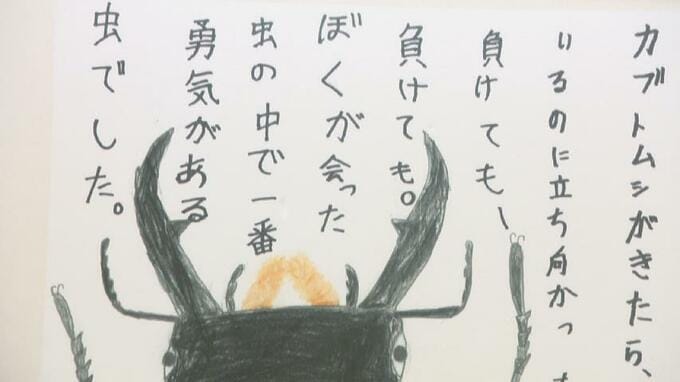 カブトムシがきたら、
いるのに立ち向かっ
負けても、
負けても。
ぼくが会った
虫の中で一番
勇気がある
虫でした。